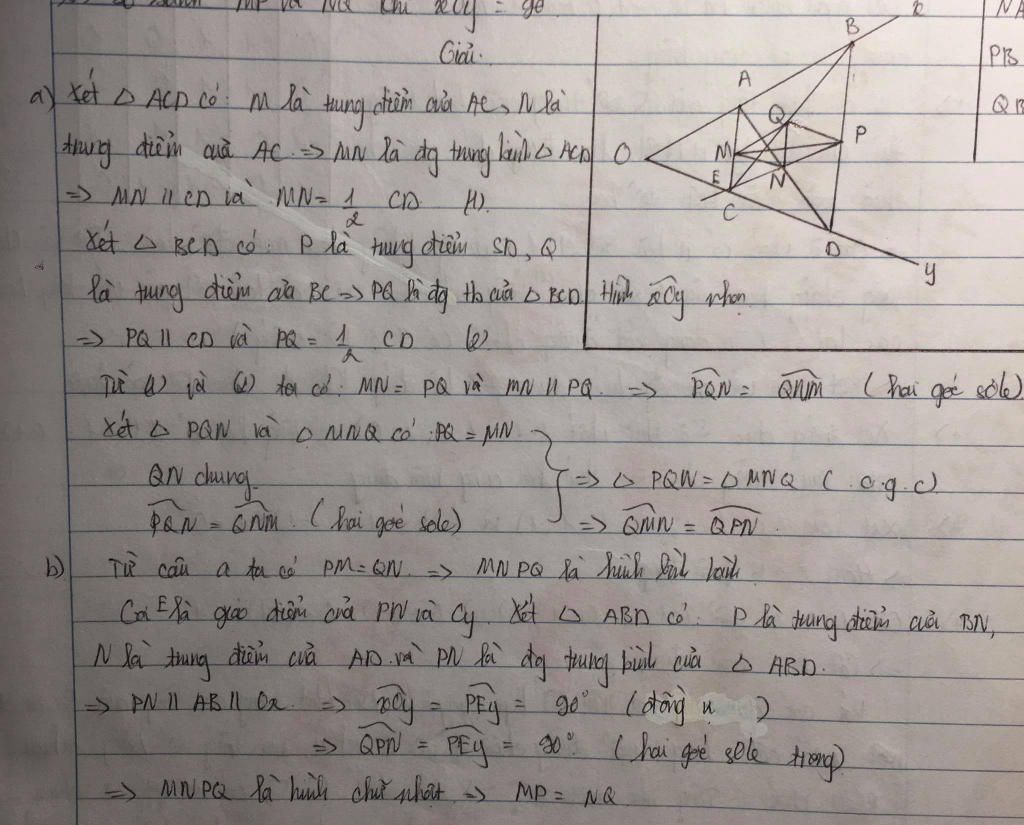 MP và NQ khi xOy = 90
Giải.
a) Xét △ ACD có: M là trung điểm của AC, N là
trung điểm của AC => MN là đg trung bình △ ACD
=> MN // CD và MN = 1/2 CD (1).
Xét △ BCD có: P là trung điểm SD, Q
là trung điểm của BC => PQ là đg tb của △ BCD
=> PQ // CD và PQ = 1/2 CD (2)
Từ (1) và (2) ta có: MN = PQ và MN // PQ. => PQN = QNM (hai góc sole)
Xét △ PQN và △ MNQ có PQ = MN
QN chung. => △ PQN = △ MNQ (c.g.c)
PQN = QNM (hai góc sole) => QMN = QPN.
b) Từ câu a ta có PM = QN. => MNPQ là hình bình hành
Gọi E là giao điểm của PN và Cy. Xét △ ABD có: P là trung điểm của BN,
N là trung điểm của AD và PN là đg trung bình của △ ABD.
=> PN // AB // Ox. => xOy = PEy = 90° (đồng vị)
=> QPN = PEy = 90° (hai góc sole trong)
=> MNPQ là hình chữ nhật => MP = NQ
x
B
A
Q
P
O
M
E
N
C
D
y
Hình xOy nhọn
NA
PB
QB